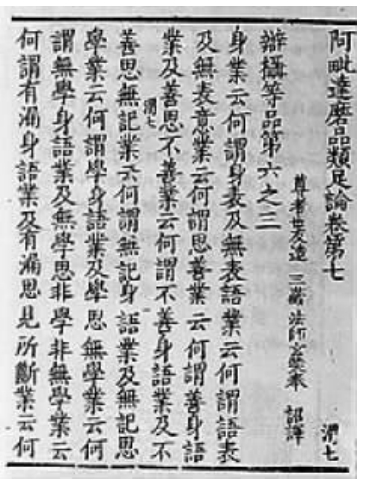 阿毗達磨品類足論卷第七
尊者世友造 三藏法師玄奘奉 詔譯
辯攝等品第六之三
身業云何謂身表及無表語業云何謂語表
及無表意業云何謂思善業云何謂善身語
業及善思不善業云何謂不善身語業及不
善思無記業云何謂無記身語業及無記思
學業云何謂學身語業及學思無學業云何
謂無學身語業及無學思非學非無學業云
何謂有漏身語業及有漏思見所斷業云何